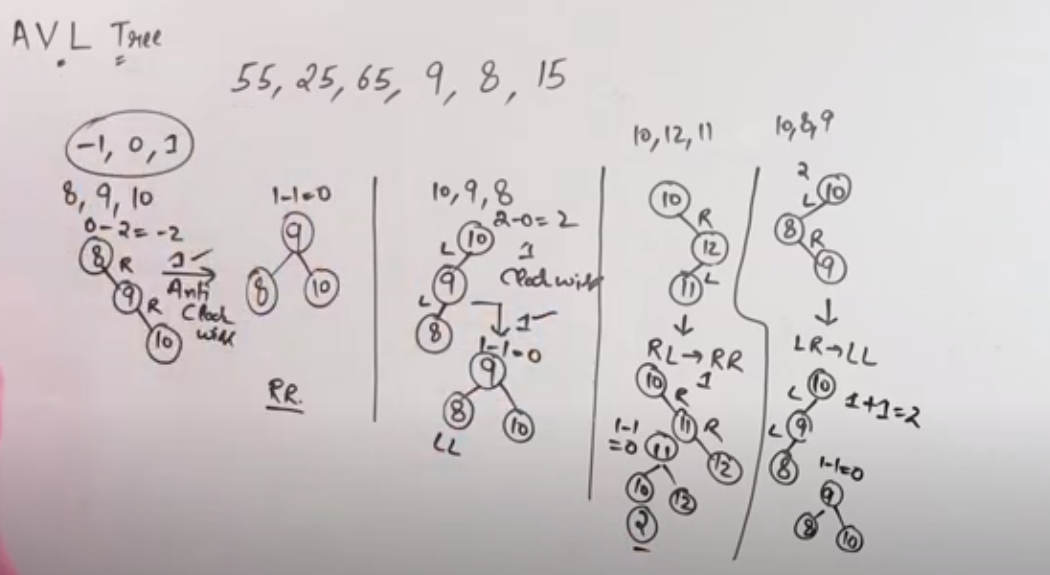 AVL Tree
55, 25, 65, 9, 8, 15
-1, 0, 1
8, 9, 10
0-2=-2
8
R
9
R
10
1
Anti
Clock
wise
1-1=0
9
8 10
RR.
10, 9, 8
2-0=2
10
L
9
L
8
1
Clockwise
1
1-1=0
9
8
10
LL
10, 12, 11
10
R
12
L
11
RL→RR
1
10
R
11
R
12
1-1
=0
11
10 12
2
10, 8, 9
2
10
L
8
R
9
LR→LL
10
L
9
L
8
1+1=2
1-1=0
9
8 10